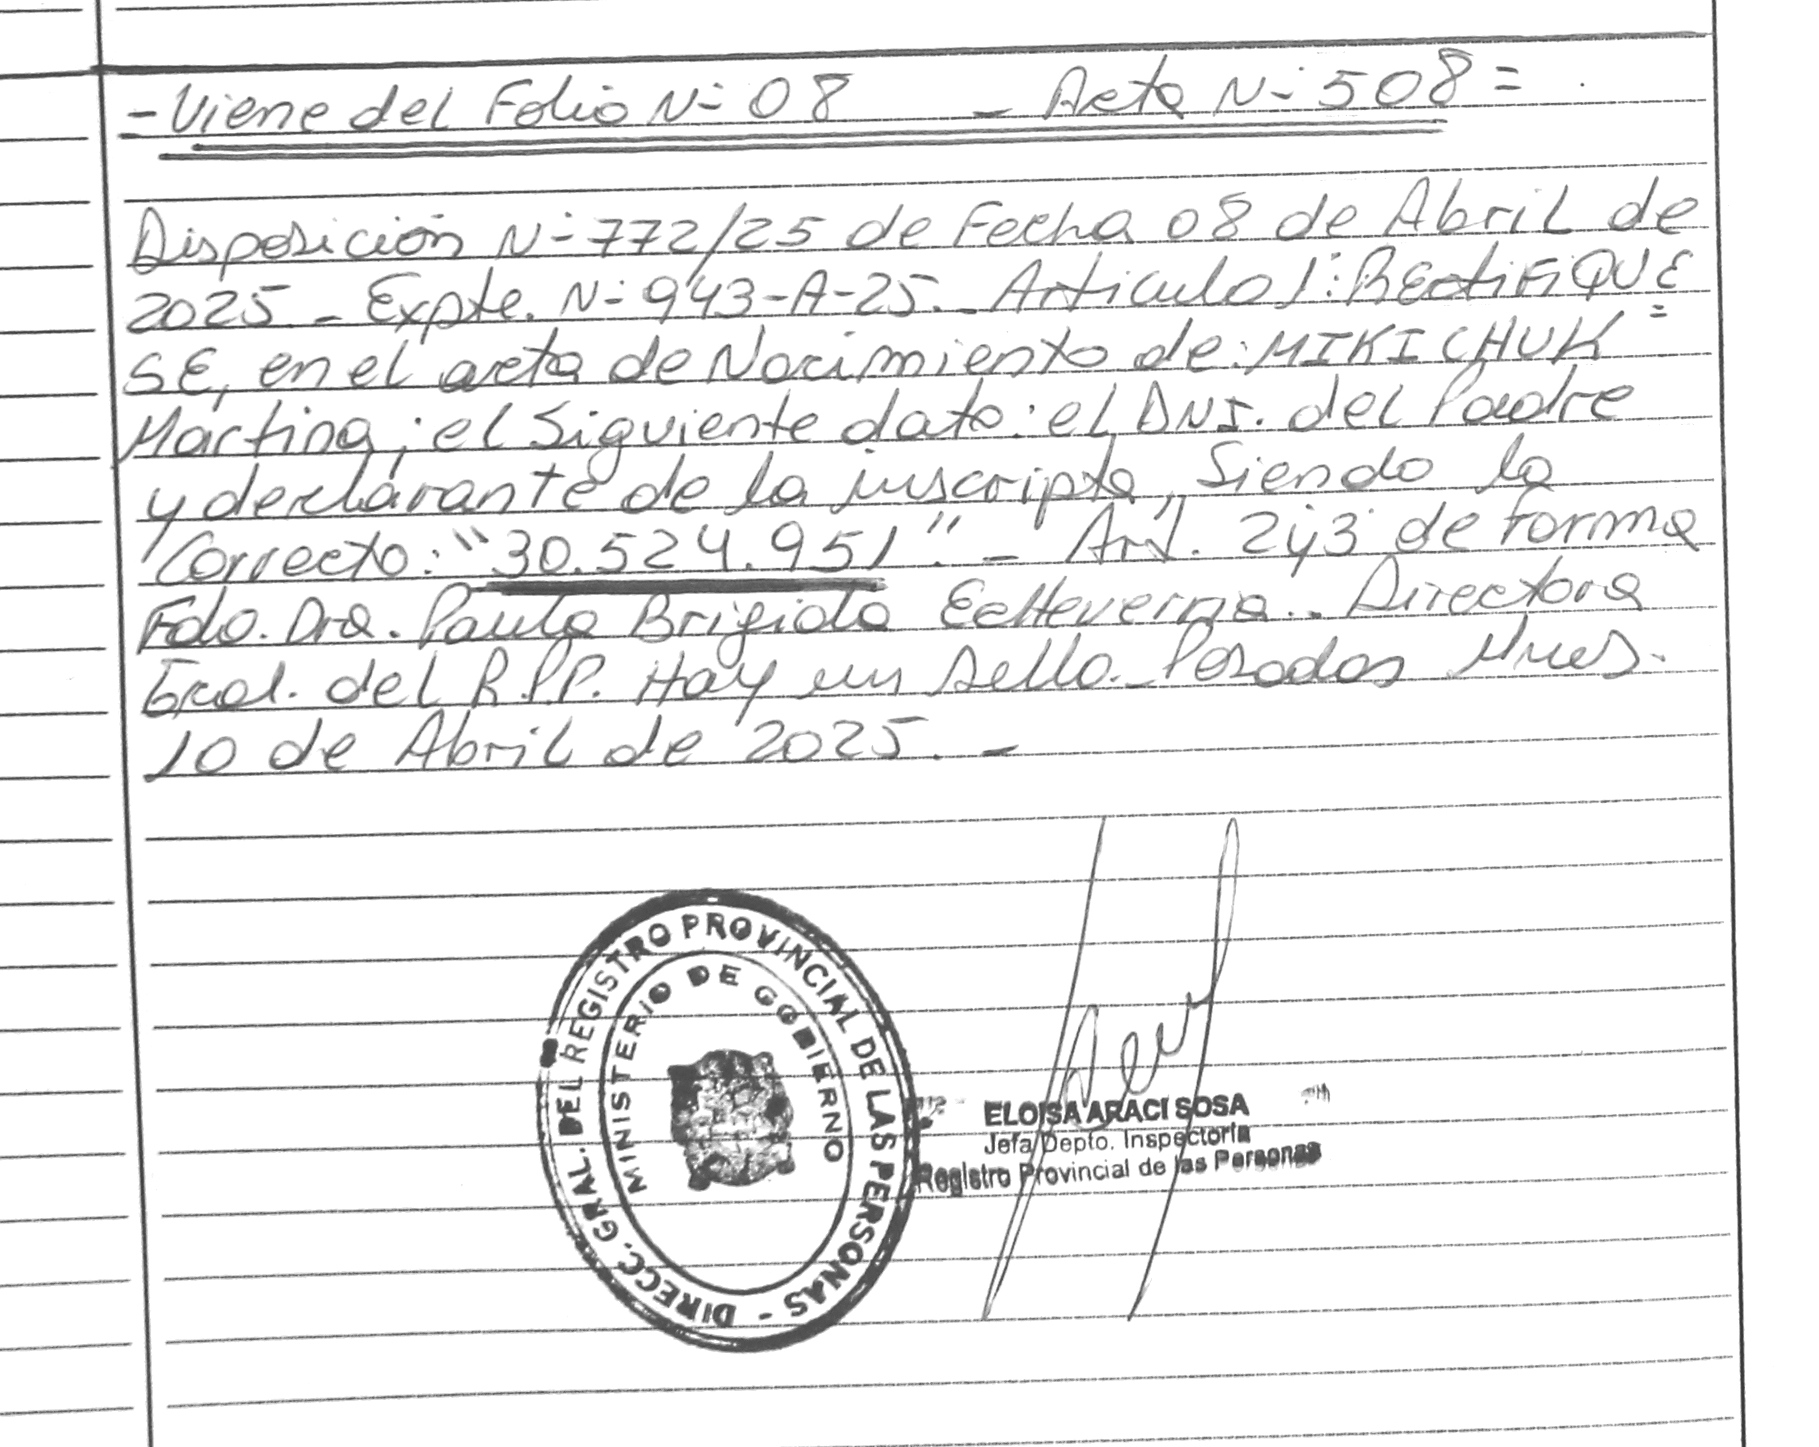 - Viene del Folio N- 08 - Acta N- 508 =
Disposición N- 772/25 de Fecha 08 de Abril de
2025 - Expte. N- 943-A-25. - Articulo 1: RECtiFiQUE =
SE, en el acta de Nacimiento de: MIKICHUK
Martina; el Siguiente dato: el DNI. del Padre
y declarante de la inscripta, Siendo lo
Correcto: "30.524.951". - Art. 2 y 3 de forma
Fdo. Dra. Paula Brigida Echeverria. Directora
Gral. del R.P.P. Hay un sello. - Posadas Mnes.
10 de Abril de 2025. -
DIRECC. GRAL. DEL REGISTRO PROVINCIAL DE LAS PERSONAS -
MINISTERIO DE GOBIERNO
ELOISA ARACI SOSA
Jefa Depto. Inspectoría
Registro Provincial de las Personas